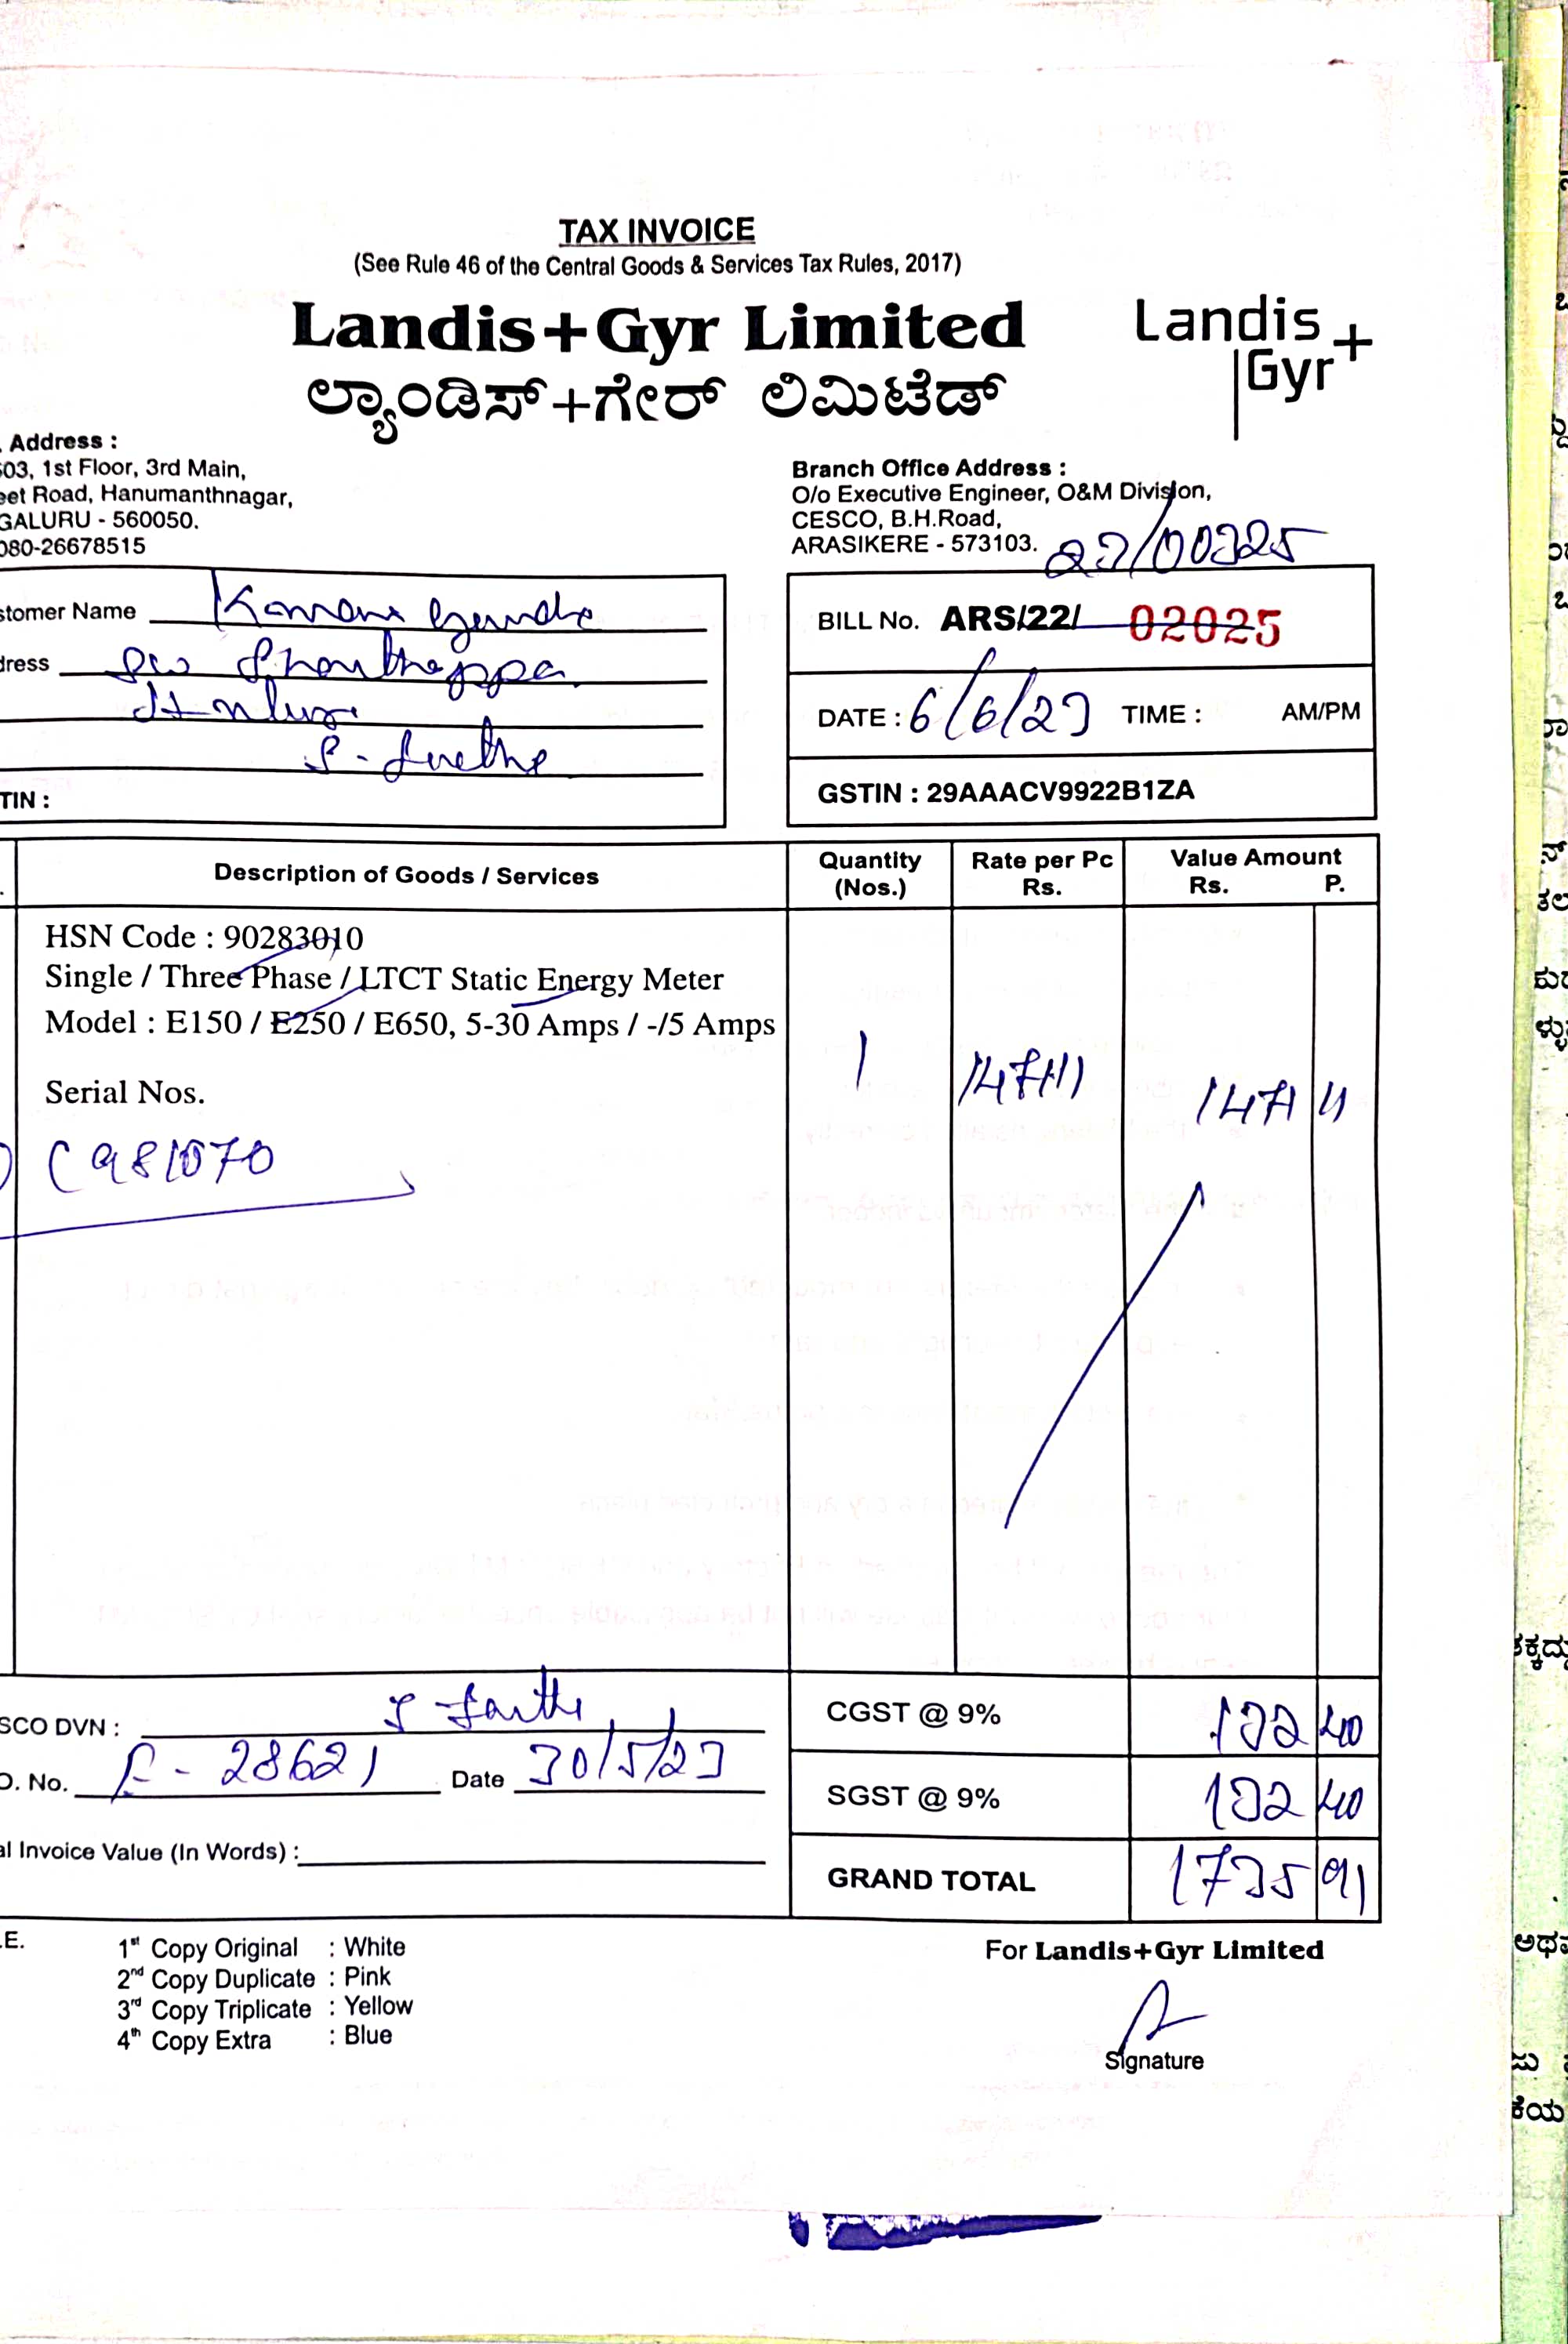 TAX INVOICE
(See Rule 46 of the Central Goods & Services Tax Rules, 2017)
Landis+Gyr Limited
ಲ್ಯಾಂಡಿಸ್+ಗೇರ್ ಲಿಮಿಟೆಡ್
Landis+
Gyr
Address :
603, 1st Floor, 3rd Main,
eet Road, Hanumanthnagar,
GALURU - 560050.
080-26678515
Branch Office Address :
O/o Executive Engineer, O&M Division,
CESCO, B.H.Road,
ARASIKERE - 573103.
23/00325
stomer Name
dress
TIN :
BILL No. ARS/22/ 02025
DATE : 6/6/23 TIME : AM/PM
GSTIN : 29AAACV9922B1ZA
Description of Goods / Services
Quantity (Nos.)
Rate per Pc Rs.
Value Amount
Rs. P.
HSN Code : 90283010
Single / Three Phase / LTCT Static Energy Meter
Model : E150 / E250 / E650, 5-30 Amps / -/5 Amps
1 1471 11
Serial Nos.
C981070
SCO DVN :
O. No. 28621 Date 30/5/23
al Invoice Value (In Words) :
CGST @ 9% 132 40
SGST @ 9% 132 40
GRAND TOTAL 1735 91
.E.
1st Copy Original : White
2nd Copy Duplicate : Pink
3rd Copy Triplicate : Yellow
4th Copy Extra : Blue
For Landis+Gyr Limited
Signature